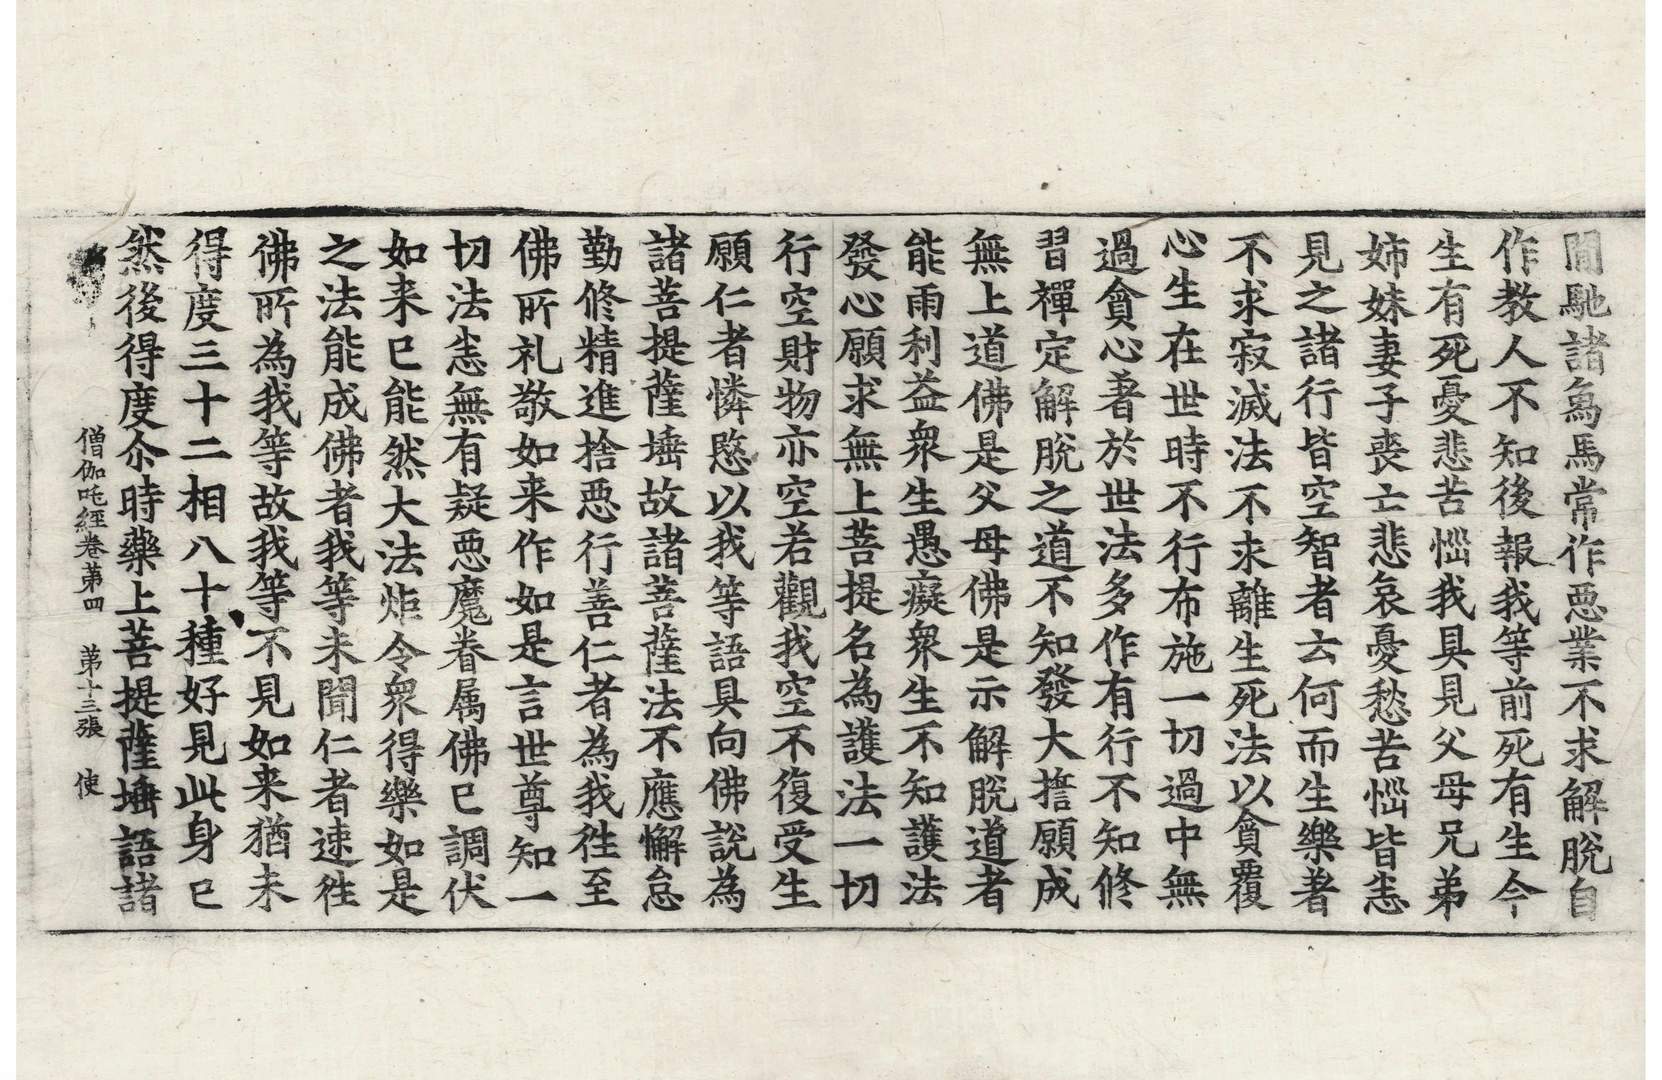 閒馳諸象馬常作惡業不求解脫自
作教人不知後報我等前死有生今
生有死憂悲苦惱我具見父母兄弟
姉妹妻子喪亡悲哀憂愁苦惱皆悉
見之諸行皆空智者云何而生樂著
不求寂滅法不求離生死法以貪覆
心生在世時不行布施一切過中無
過貪心著於世法多作有行不知修
習禪定解脫之道不知發大擔願成
無上道佛是父母佛是示解脫道者
能雨利益衆生愚癡衆生不知護法
發心願求無上菩提名為護法一切
行空財物亦空若觀我空不復受生
願仁者憐愍以我等語具向佛說為
諸菩提薩埵故諸菩薩法不應懈怠
勤修精進捨惡行善仁者為我往至
佛所礼敬如来作如是言世尊知一
切法悉無有疑惡魔眷属佛已調伏
如来已能然大法炬令衆得樂如是
之法能成佛者我等未聞仁者速往
佛所為我等故我等不見如来猶未
得度三十二相八十種好見此身已
然後得度尒時藥上菩提薩埵語諸
僧伽吒經卷第四 第十三張 使